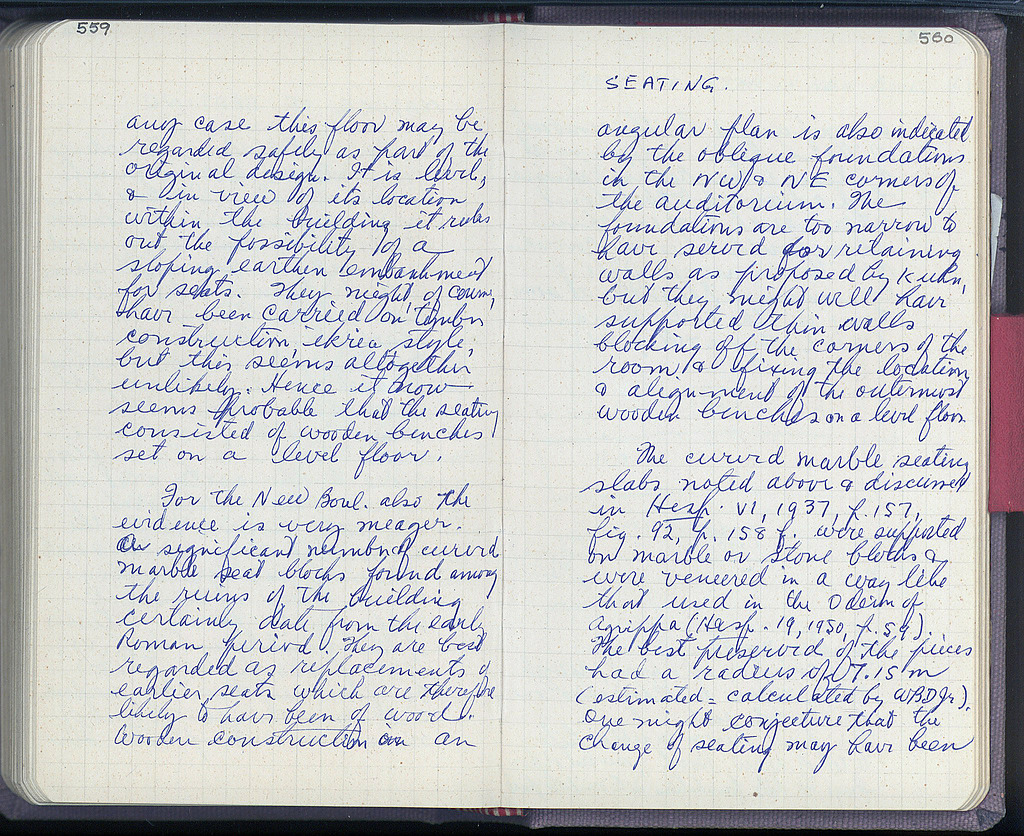 559
any case this floor may be
regarded safely as part of the
original design. It is level,
& in view of its location
within the building it rules
out the possibility of a
sloping earthen embankment
for seats. They might, of course,
have been carried on timber
construction, ikria style,
but this seems altogether
unlikely. Hence it now
seems probable that the seating
consisted of wooden benches
set on a level floor.
For the New Boul. also the
evidence is very meager.
A significant number of curved
marble seat blocks found among
the ruins of the building
certainly date from the early
Roman period. They are best
regarded as replacements of
earlier seats which are therefore
likely to have been of wood.
Wooden construction on an
560
SEATING.
angular plan is also indicated
by the oblique foundations
in the NW & NE corners of
the auditorium. The
foundations are too narrow to
have served for retaining
walls as proposed by Kuhn,
but they might well have
supported thin walls
blocking off the corners of the
room & fixing the location
& alignment of the outermost
wooden benches on a level floor.
The curved marble seating
slabs noted above & discussed
in Hesp. VI, 1937, p. 157,
fig. 92, p. 158 f. were supported
on marble or stone blocks &
were veneered in a way like
that used in the Odeion of
Agrippa (Hesp. 19, 1950, p. 59).
The best preserved of the pieces
had a radius of 7.15 m
(estimated = calculated by WBD Jr.).
One might conjecture that the
change of seating may have been